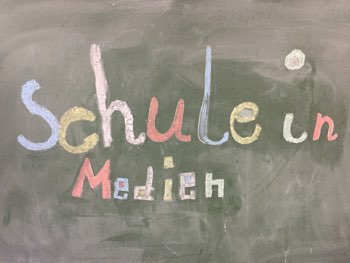 Schule in
Medien